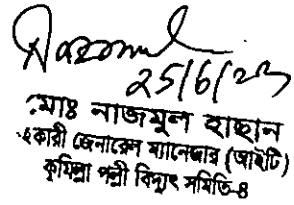 25/6/23
মোঃ নাজমুল হাছান
সহকারী জেনারেল ম্যানেজার (আইটি)
কুমিল্লা পল্লী বিদ্যুৎ সমিতি-৪